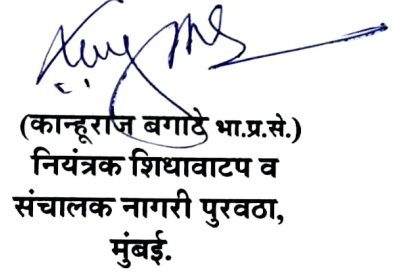 (कान्हूराज बगाटे भा.प्र.से.)
नियंत्रक शिधावाटप व
संचालक नागरी पुरवठा,
मुंबई.